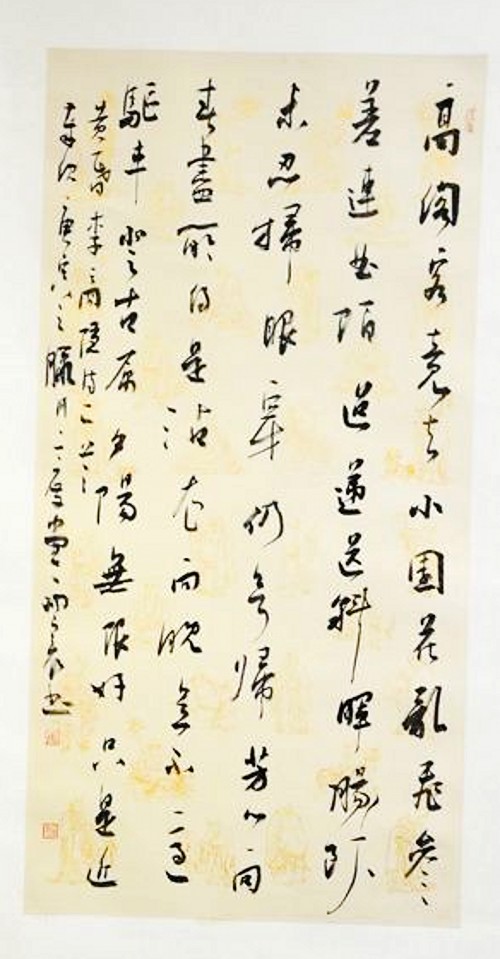 高閣客竟去小園花亂飛參々
差連曲陌迢遞送斜暉腸斷
未忍掃眼穿仍欲歸芳心向
春盡所得是沾衣向晚意不適
驅車登古原夕陽無限好只是近
黄昏李商隱詩二首
庚寅之臘月書